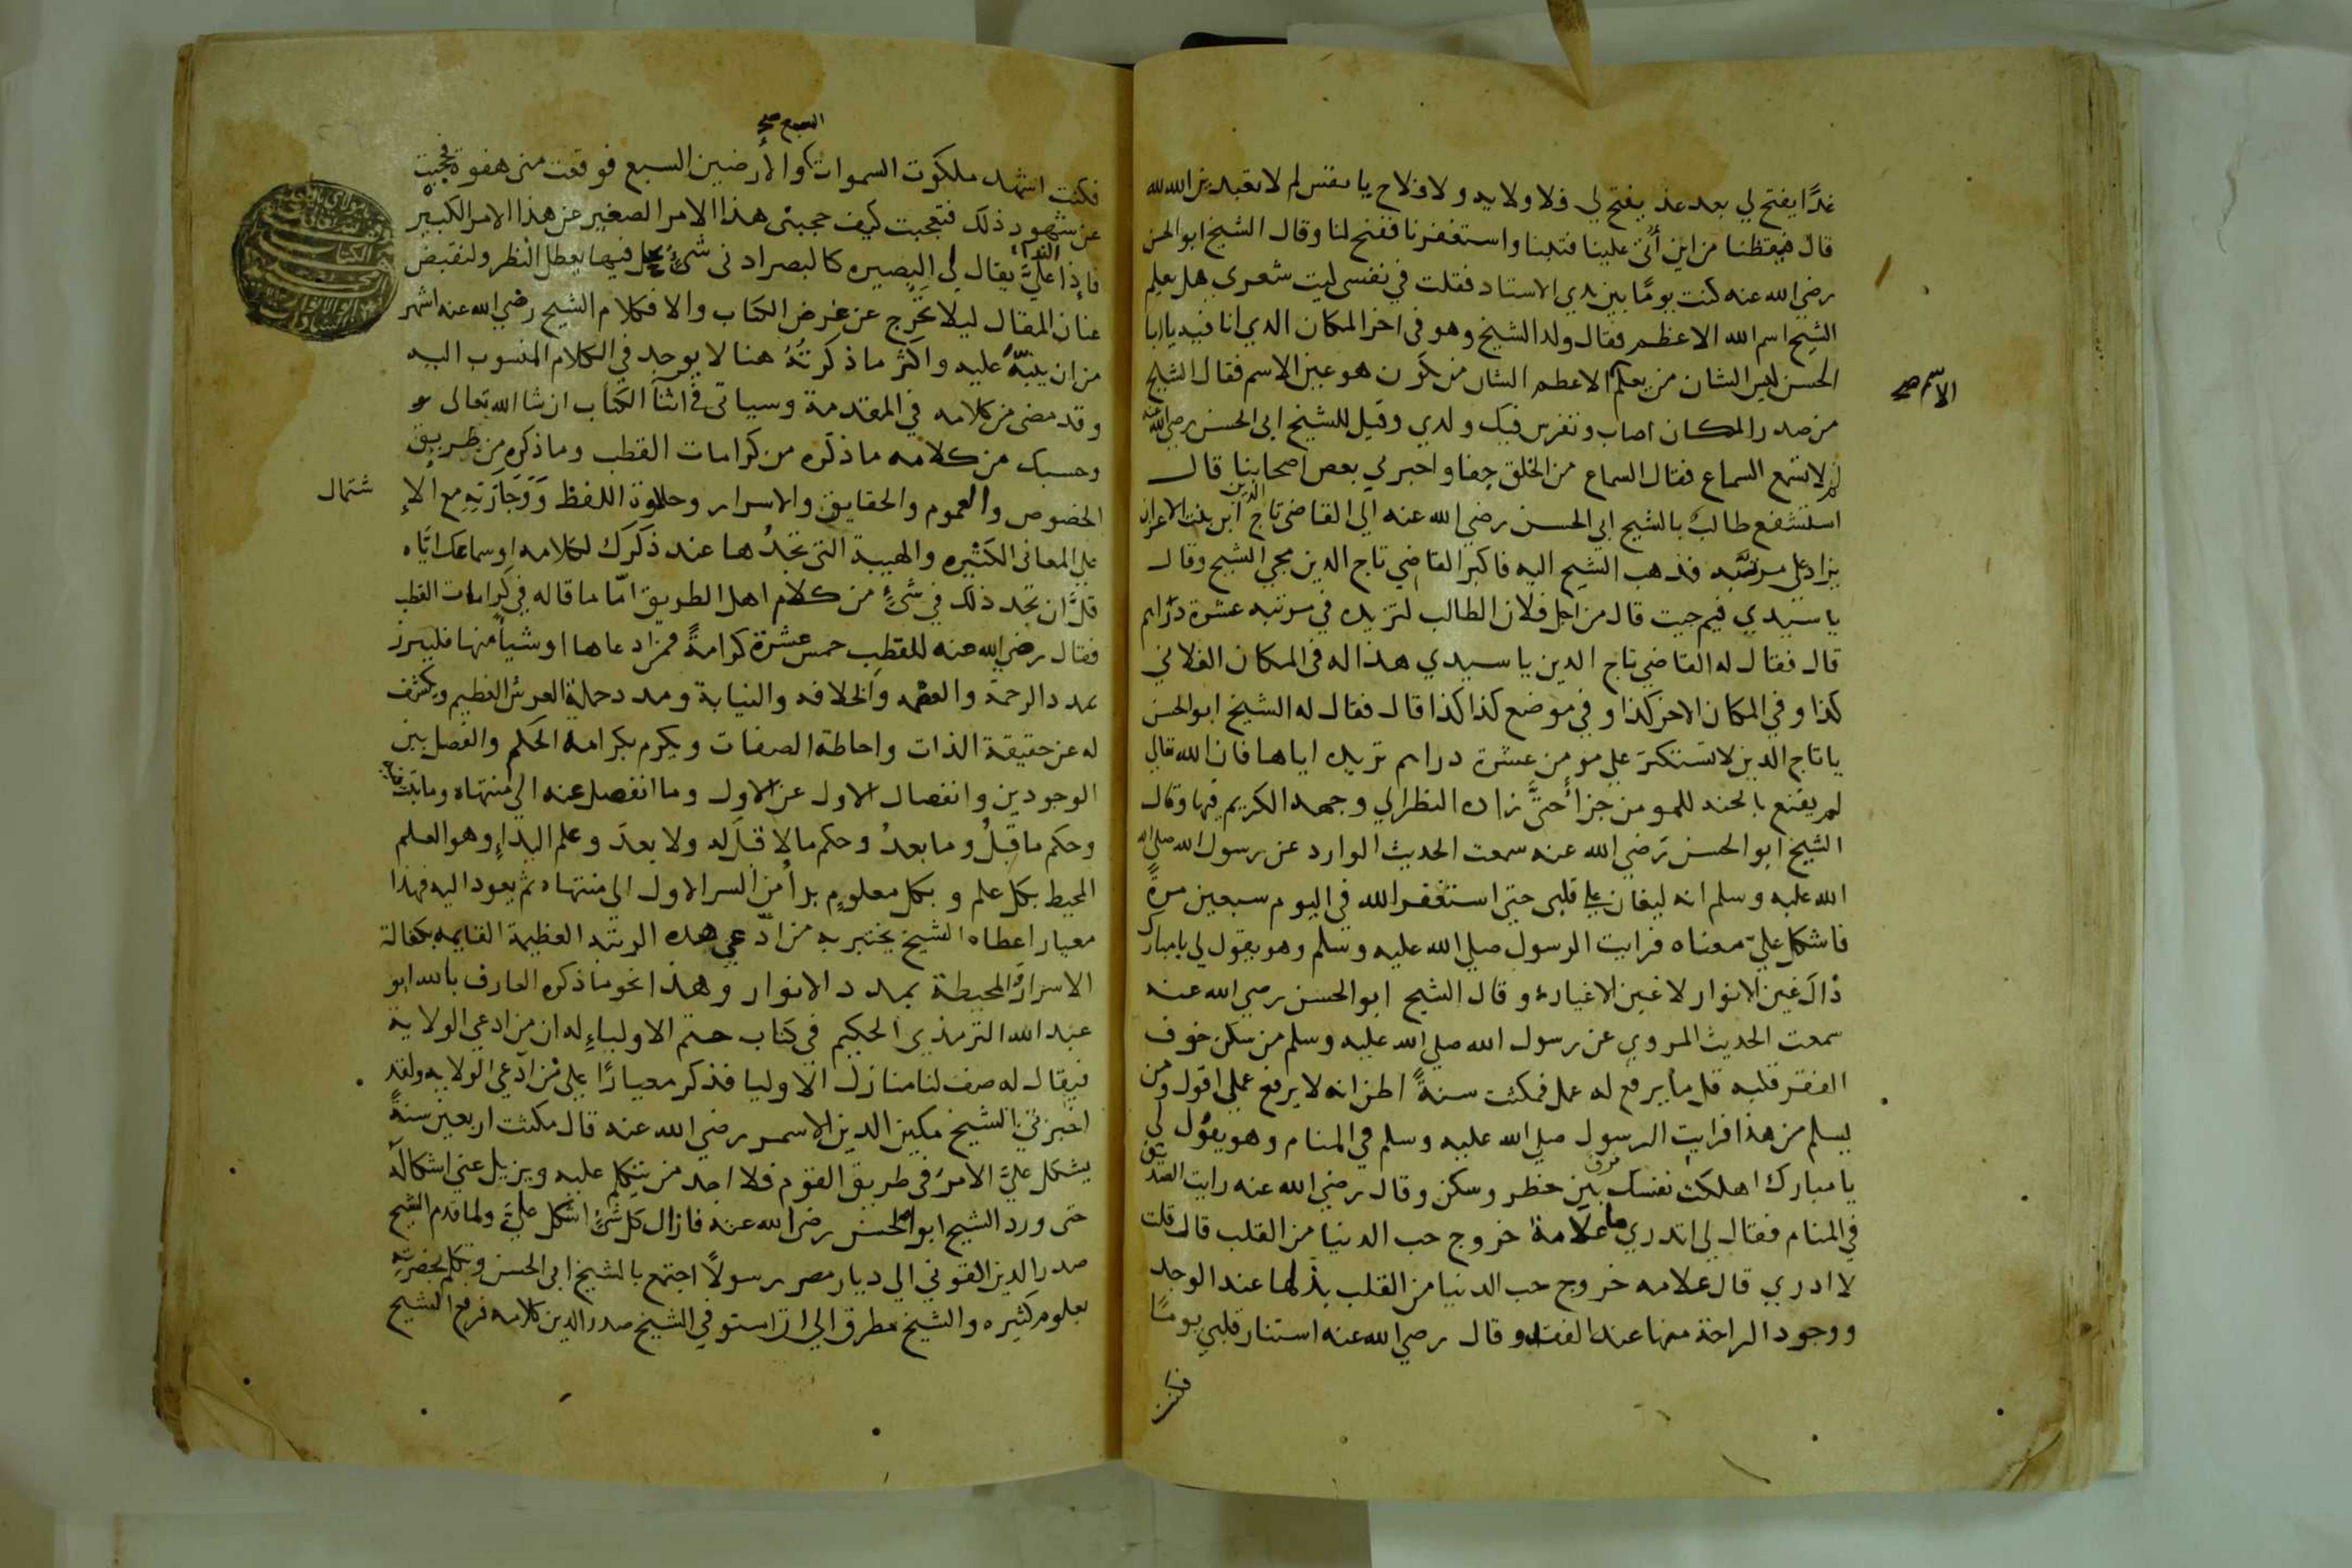 غدًا يفتح لي بعد غد يفتح لي فلا ولاية ولا فلاح يا نفس لم لا تعبدين الله لله
قال فتيقظنا من اين أتى علينا فتبنا واستغفرنا ففتح لنا وقال الشيخ ابو الحسن
رضي الله عنه كنت يومًا بين يدي الاستاد فقلت في نفسي ليت شعري هل يعلم
الشيخ اسم الله الاعظم فقال ولد الشيخ وهو في اخر المكان الذي انا فيه يا ابا
الحسن ليس الشان من يعلم الاعظم الشان من يكون هو عين الاسم فقال الشيخ
الاسم صح
من صدر المكان اصاب وتفرس فيك ولدي وقيل للشيخ ابي الحسن رضي الله عنه
لم لا تسمع السماع فقال السماع من الخلق جفا واخبرني بعض اصحابنا قال
استشفع طالبٌ بالشيخ ابي الحسن رضي الله عنه الي القاضي تاج الدين ابن بنت الاعز ان
يزاد علي مرتبه فذهب الشيخ اليه فاكبر القاضي تاج الدين مجي الشيخ وقال
يا سيدي فيم جيت قال من اجل فلان الطالب لتزيده في مرتبه عشرة دراهم
قال فقال له القاضي تاج الدين يا سيدي هذا له في المكان الفلاني
كذا وفي المكان الاخر كذا وفي موضع كذا كذا قال فقال له الشيخ ابو الحسن
يا تاج الدين لا تستكثر علي مومن عشرة دراهم تزيده اياها فان الله تعالي
لم يقنع بالجنه للمومن جزأً حتَّى زاده النظر الي وجهه الكريم فيها وقال
الشيخ ابو الحسن رضي الله عنه سمعت الحديث الوارد عن رسول الله صلي الله
الله عليه وسلم انه ليغان علي قلبي حتي استغفر الله في اليوم سبعين مرةً
فاشكل عليّ معناه فرايت الرسول صلي الله عليه وسلم وهو يقول لي يا مبارك
ذاك غين الانوار لا غين الاغيار وقال الشيخ ابو الحسن رضي الله عنه
سمعت الحديث المروي عن رسول الله صلي الله عليه وسلم من سكن خوف
الفقر قلبه قل ما يرفع له عمل فمكثت سنةً اظن انه لا يرفع عملي اقول ومن
يسلم من هذا فرايت الرسول صلي الله عليه وسلم في المنام وهو يقول لي
يا مبارك اهلكت نفسك فرق بين خطر وسكن وقال رضي الله عنه رايت الصديق
في المنام فقال لي اتدري ما علامة خروج حب الدنيا من القلب قال قلت
لا ادري قال علامه خروج حب الدنيا من القلب بذلها عند الوجد
ووجود الراحة منها عند الفقد وقال رضي الله عنه استنار قلبي يومًا
فكنت
السبع صح
فكنت اشهد ملكوت السموات والأرضين السبع فوقعت مني هفوة فحجبت
عن شهود ذلك فتعجبت كيف حجبني هذا الامر الصغير عن هذا الامر الكبير
فإذا النداءُ عليَّ يقال لي البصيره كالبصر ادنى شيءٍ يحل فيها يعطل النظر ولنقبض
عنان المقال ليلا نخرج عن غرض الكتاب والا فكلام الشيخ رضي الله عنه اشهر
من ان ينبّه عليه واكثر ما ذكرتُهُ هنا لا يوجد في الكلام المنسوب اليه
وقد مضى من كلامه في المقدمة وسياتي في اثنآ الكتاب ان شا الله تعالى
وحسبك من كلامه ما ذكره من كرامات القطب وما ذكره من طريق
الخصوص والعموم والحقايق والاسرار وحلاوة اللفظ وَوَجَازَتِهِ مع الإ شتمال
علي المعاني الكثيره والهيبة التي تجدُها عند ذكرك لكلامه او سماعك ايّاه
قلَّ ان تجد ذلك في شيءٍ من كلام اهل الطريق امّا ما قاله في كرامات القطب
فقال رضي الله عنه للقطب خمس عشرة كرامةً فمن ادعاها او شيأً منها فليبرز
بمدد الرحمة والعصمه والخلافه والنيابة ومدد حملة العرش العظيم ويكشف
له عن حقيقة الذات واحاطة الصفات ويكرم بكرامة الحكم والفصل بين
الوجودين وانفصال الاول عن الاول وما انفصل عنه الي منتهاه وما ثبت فيه
وحكم ما قبلُ وما بعدُ وحكم ما لا قبلَ له ولا بعدَ وعلم البداءِ وهو العلم
المحيط بكل علم وبكل معلوم بدأ من السر الاول الي منتهاه ثم يعود اليه فهذا
معيار اعطاه الشيخ يختبر به من ادّعي هذه الرتبه العظيمة القايمه بكفالة
الاسرار المحيطة بمدد الانوار وهذا نحو ما ذكره العارف بالله ابو
عبد الله الترمذي الحكيم في كتاب ختم الاولياءِ له ان من ادعي الولاية
فيقال له صف لنا منازل الاوليا فذكر معيارًا علي من ادّعي الولايه ولقد
اخبرني الشيخ مكين الدين الاسمر رضي الله عنه قال مكثت اربعين سنةً
يشكل عليَّ الامرُ في طريق القوم فلا اجد من يتكلم عليه ويزيل عني اشكاله
حتى ورد الشيخ ابو الحسن رضي الله عنه فازال كل شيءٍ اشكل عليَّ ولما قدم الشيخ
صدر الدين القونوي الي ديار مصر رسولًا اجتمع بالشيخ ابي الحسن وتكلم بحضرته
بعلوم كثيره والشيخ مطرق الي ان استوفي الشيخ صدر الدين كلامه فرفع الشيخ